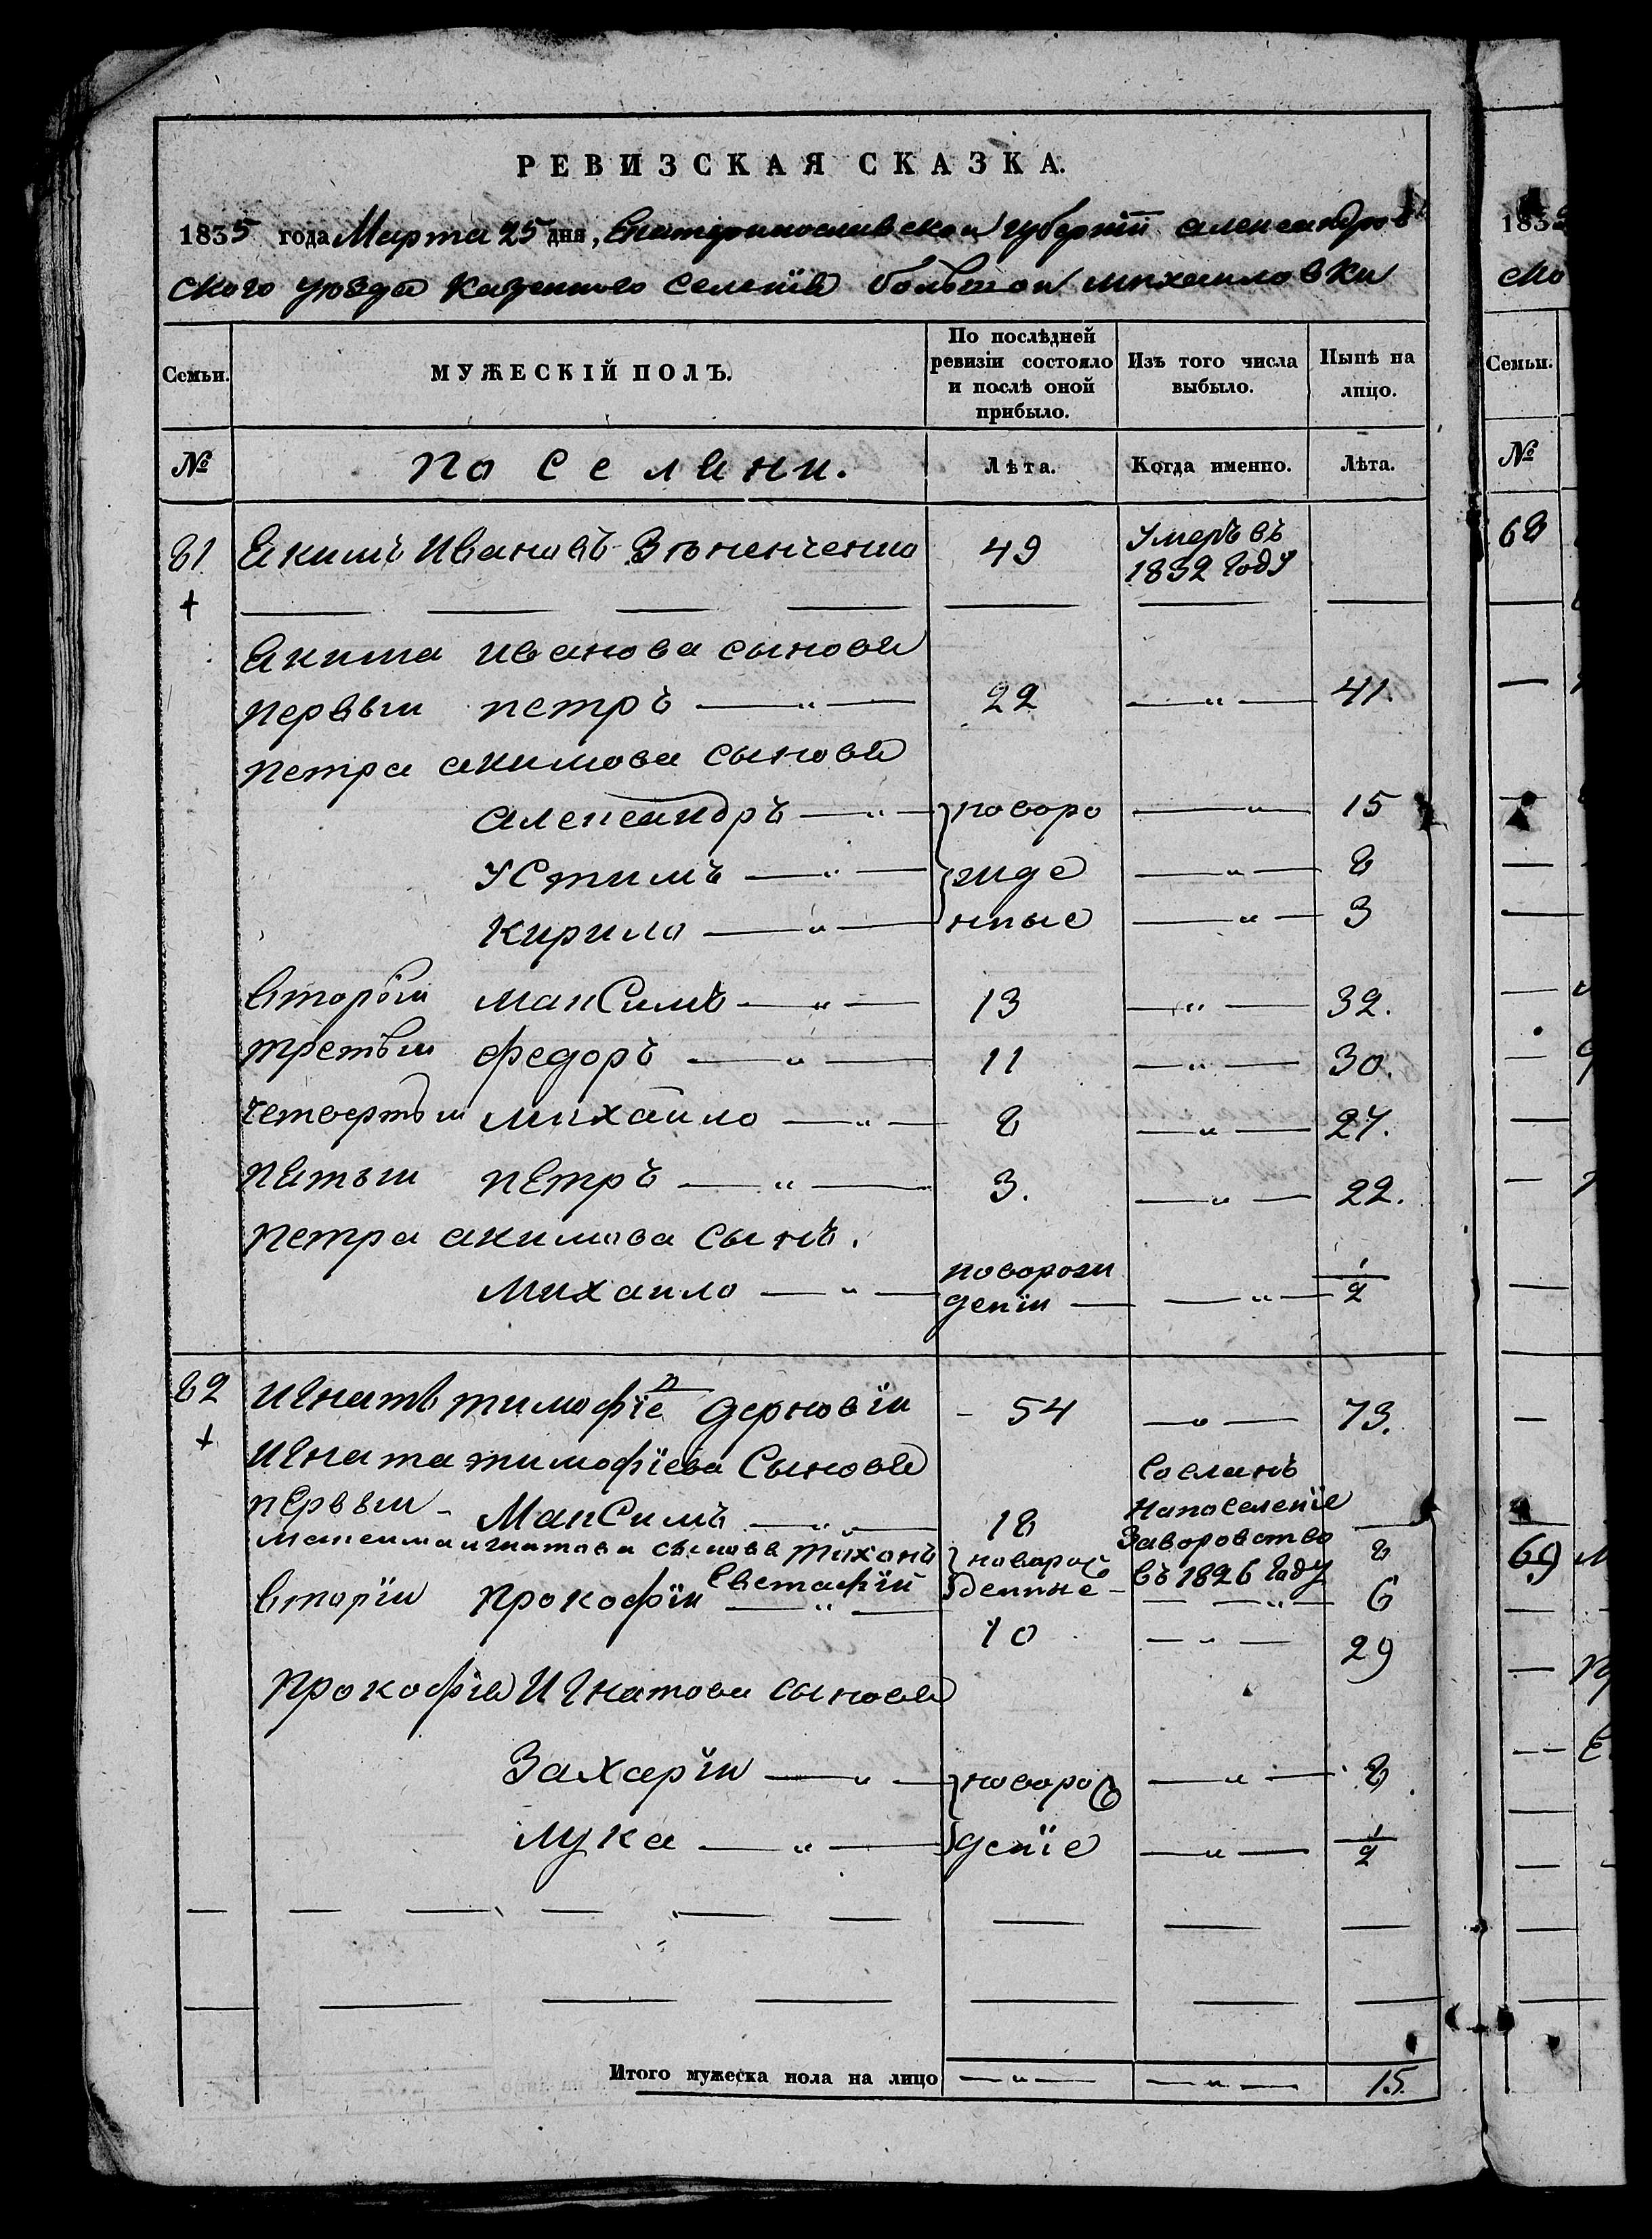 РЕВИЗСКАЯ СКАЗКА.
1835 года Марта 25 дня, Екатеринославской губернїи александров
ского уезда казенного селенїя большой михаиловки
Семьи. МУЖЕСКІЙ ПОЛЪ. По послѣдней ревизіи состояло и послѣ оной прибыло. Изъ того числа выбыло. Нынѣ на лицо.
№ поселяни. Лѣта. Когда именно. Лѣта.
81 Якимъ Ивановъ 49 Умеръ въ 1832 году
Якима иванова сыновя
первыи петръ — 22 — 41.
Петра акимова сыновя
александръ — новоро — 15
Устимъ — жде — 8
Кирило — нные — 3
вторїи максимъ — 13 — 32.
третьи федоръ — 11 — 30.
четвертыи михаило — 8 — 27.
пятыи петръ — 3. — 22.
Петра акимова сынъ.
Михаило — новорож денїи — 1/2
82 игнатъ тимофїе в дерновїи 54 — 73.
игната тимофїева сыновя
первыи Максимъ — 18 Сосланъ напоселенїе заворовство въ 1826 году
максима игнатова сыновя тихонъ новорож 8
Евстафїй денные — 6
вторїи прокофїи — 10 — 29
прокофїя Игнатова сыновя
Захарїи — новорож — 8
лука — денїе — 1/2
Итого мужеска пола на лицо — — 15.
183
ско
Семьи.
№
68
69